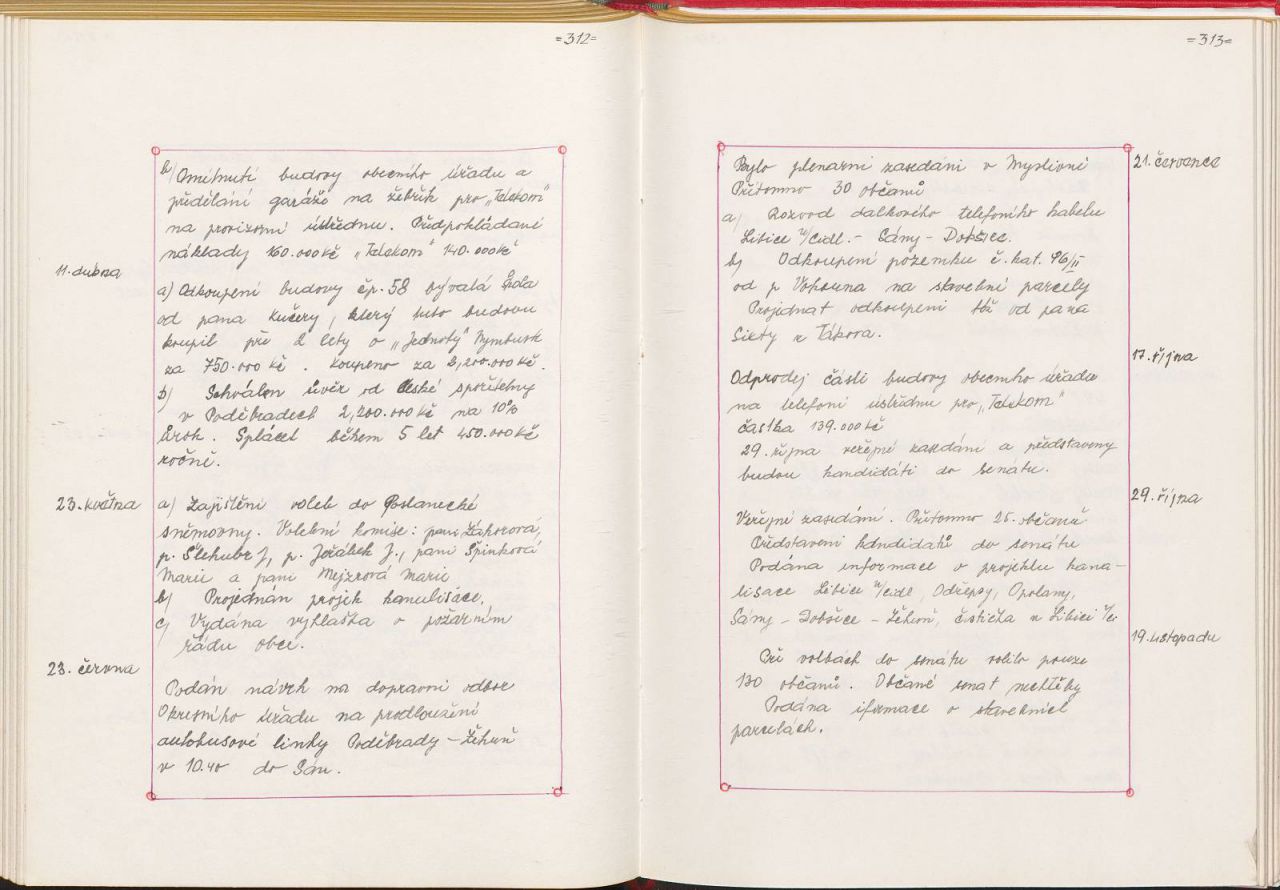 =312=
b) Omítnutí budovy obecního úřadu a
předělání garáže na žebřík pro „Telekom"
na provizorní ústřednu. Předpokládané
náklady 160.000 kč „Telekom" 140.000 kč
11. dubna
a) Odkoupení budovy čp. 58 bývalá Škola
od pana Kučery, který tuto budovu
koupil pře 2 lety o „Jednoty" Nymburk
za 750.000 Kč. Koupeno za 2,200.000 kč.
b) Schválen úvěr od České spořitelny
v Poděbradech 2,200.000 kč na 10%
úrok. Splácet během 5 let 450.000 kč
ročně.
23. května
a) Zajištění voleb do Poslanecké
sněmovny. Volební komise: paní Záhorová,
p. Šlehubr J, p. Jeřábek J., paní Špinková
Marie a paní Mejzrová Marie
b) Projednán projek kanalisace.
c) Vydána vyhláška o požárním
řádu obce.
23. června
Podán návrh na dopravní odbor
Okresního úřadu na prodloužení
autobusové linky Poděbrady – Žehuň
v 10.40 do Sán.
=313=
21. července
Bylo plenarní zasedání v Myslivně
Přítomno 30 občanů
a) Rozvod dalkového telefoního kabelu
Libice n/cidl. – Sány – Dobšice.
b) Odkoupení pozemku č. kat. 96/II
od p Vohouna na stavební parcely
Projednat odkoupení též od pana
Sixty z Tábora.
17. října
Odprodej části budovy obecního úřadu
na telefoní ústřednu pro „Telekom"
částka 139.000 kč
29. října veřejné zasedání a představeny
budou kandidáti do senátu.
29. října
Veřejné zasedání. Přítomno 25. občanů
Představeni kandidáti do senátu
Podána informace o projektu kana-
lisace Libice n/cidl, Odřepsy, Opolany,
Sány – Dobšice – Žehuň, čistička v Libici n/c.
19. listopadu
Při volbách do senátu volilo pouze
130 občanů. Občané senat nechtěly
Podána iformace o stavebních
parcelách.